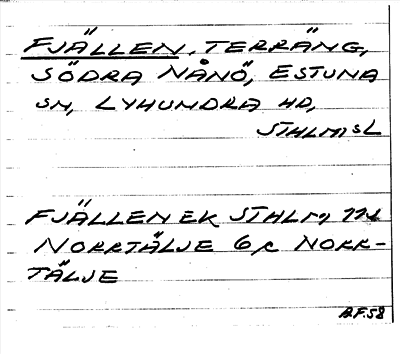 FJÄLLEN, TERRÄNG,
SÖDRA NÅNÖ, ESTUNA
SN, LYHUNDRA HD,
STHLMSL
FJÄLLEN EK STHLM
NORRTÄLJE 6 NORR-
TÄLJE
B.F.58